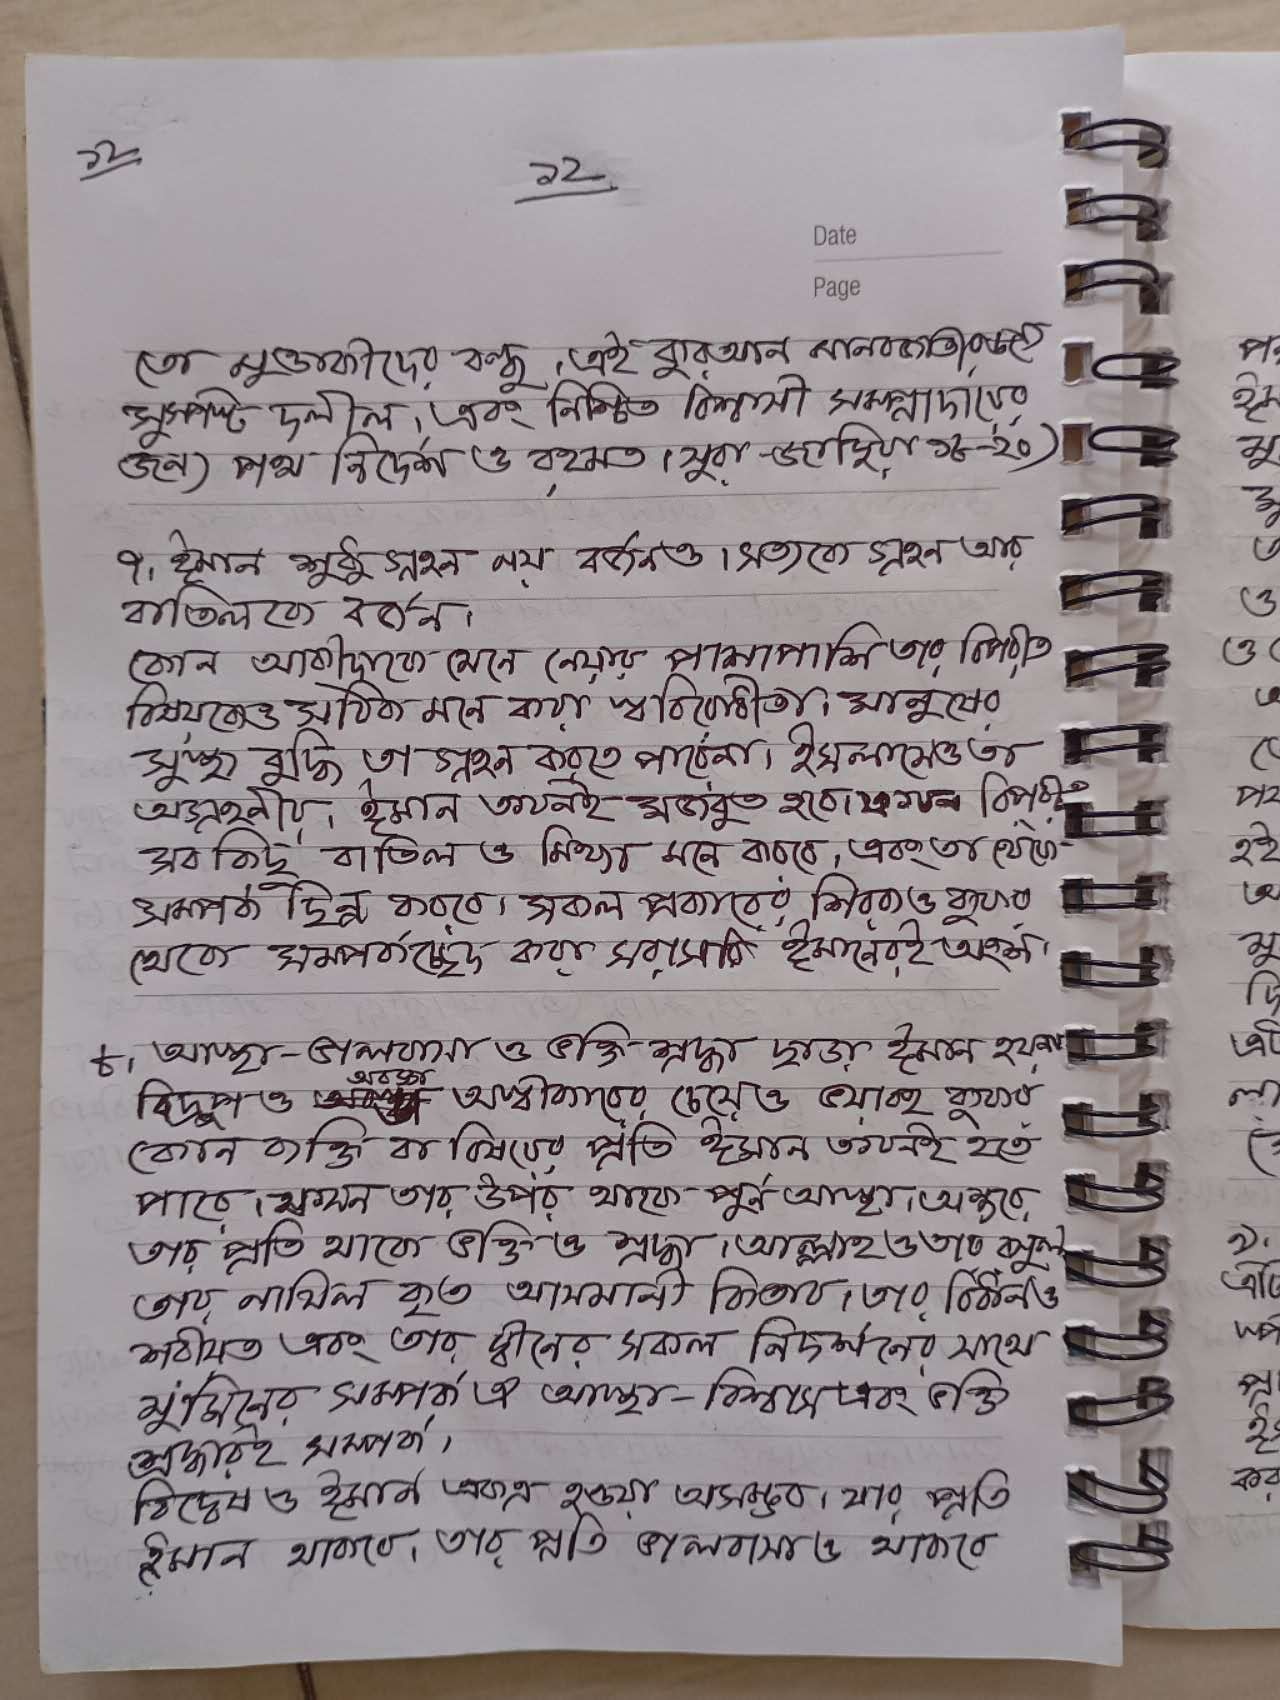 ১২
১২
Date
Page
তো মুত্তাকীদের বন্ধু। এই কুরআন মানবজাতীর জন্যে
সুস্পষ্ট দলীল। এবং নিশ্চিত বিশ্বাসী সমপ্রাদায়ের
জন্য পথ নির্দেশ ও রহমত। সুরা-জাছিয়া ১৮-২০)
৭। ঈমান শুধু গ্রহন নয় বর্জনও। সত্যকে গ্রহন আর
বাতিলকে বর্জন।
কোন আকীদাকে মেনে নেয়ার পাশাপাশি তার বিপরীত
বিষয়কেও সঠিক মনে করা স্ববিরোধীতা। মানুষের
সুস্থ বুদ্ধি তা গ্রহন করতে পারেনা। ইসলামেও তা
অগ্রহনীয়। ঈমান তখনই মজবুত হবে। যখন বিপরীত
সব কিছু বাতিল ও মিথ্যা মনে করবে। এবং তা থেকে
সমপর্ক ছিন্ন করবে। সকল প্রকারের শিরক ও কুফর
থেকে সমপর্কচ্ছেদ করা সরাসরি ঈমানেরই অংশ।
৮। আস্থা-ভালবাসা ও ভক্তি-শ্রদ্ধা ছাড়া ঈমান হয়না
অবজ্ঞা
বিদ্রুপ ও অস্বীকারের চেয়েও ভয়াবহ কুফর
কোন ব্যক্তি বা বিষয়ের প্রতি ঈমান তখনই হতে
পারে। যখন তার উপর থাকে পূর্ন আস্থা। অন্তরে
তার প্রতি থাকে ভক্তি ও শ্রদ্ধা। আল্লাহ ও তার রসুল
তার নাযিল কৃত আসমানী কিতাব। তার বিধান ও
শরীয়ত এবং তার দ্বীনের সকল নিদর্শনের সাথে
মুমিনের সমপর্ক ঐ আস্থা-বিশ্বাস এবং ভক্তি
শ্রদ্ধারই সমপর্ক।
বিদ্বেষ ও ঈমান একত্র হওয়া অসম্ভব। যার প্রতি
ঈমান থাকবে। তার প্রতি ভালবাসা ও থাকবে